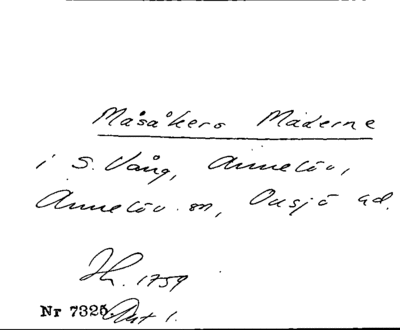 Måsåkers Maderne
i S. Vång, Annelöv,
Annelöv sn, Onsjö hd.
Jh. 1759
Nr 7325 Akt 1.